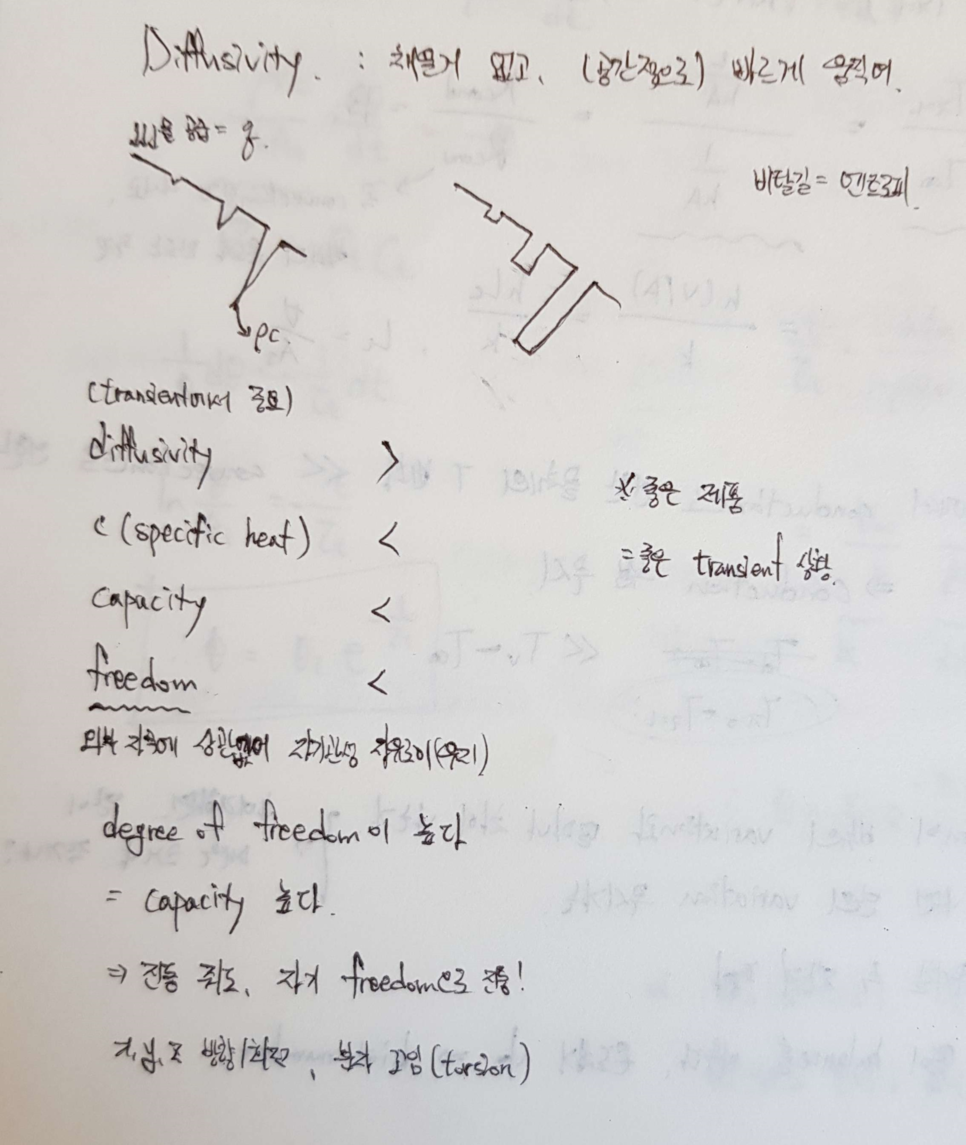 Diffusivity. : 채울거 없고, (공간적으로) 빠르게 움직여.
물을 공급 = q.
비탈길 = 엔트로피.
ρc.
(transient에서 중요)
diffusivity >
c (specific heat) <
※ 좋은 제품
= 좋은 transient 상황.
capacity <
freedom <
외부 자극에 상관없이 자기관성 자유로이(유지)
degree of freedom이 높다
= capacity 높다.
⇒ 진동 줘도, 자기 freedom으로 진동!
x, y, z 방향/회전, 분자 꼬임 (torsion)